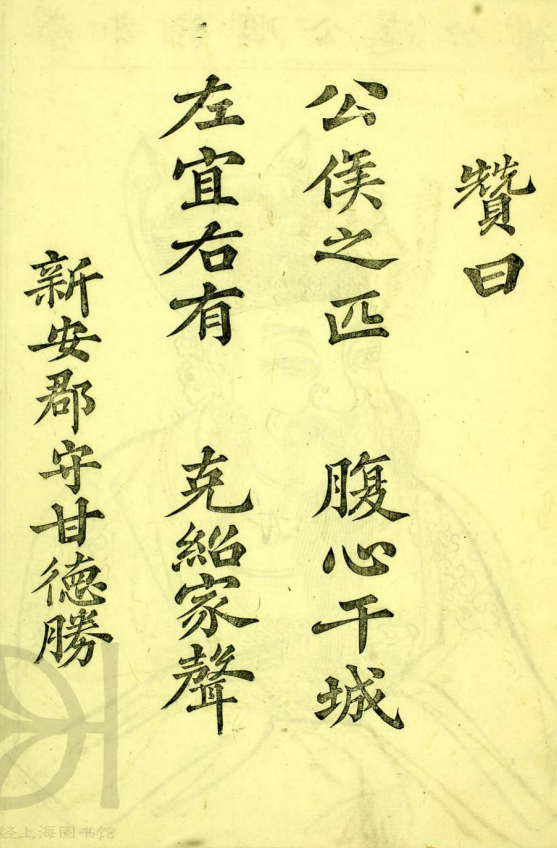 贊曰
公侯之匹 腹心干城
左宜右有 克紹家聲
新安郡守甘德勝
经上海图书馆